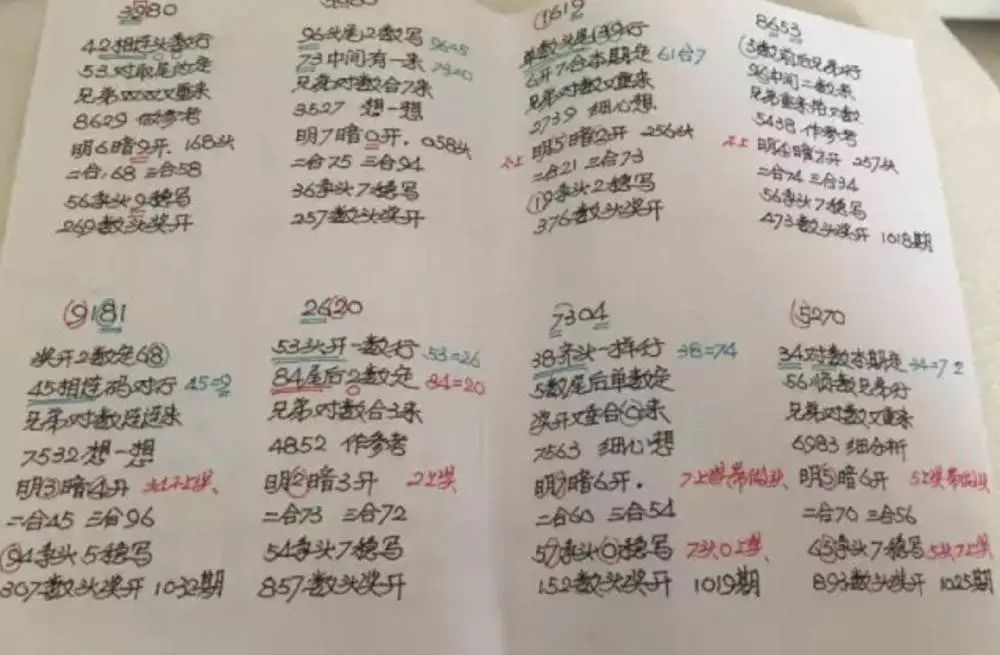 3980
42相连头数行
53对取尾内定
兄弟双双又重来
8629 做参考
明6暗9开. 168头
二合68 三合58
56拿头9稳写
269数头奖开
96头尾12数写 96=5
73中间有一来 73=20
兄弟对数合7来
3527 想一想
明7暗0开. 058头
二合75 三合94
36拿头7稳写
257数头奖开
1619
单数头尾(39)行
6开7合本期定 61合7
兄弟对数又重来
2739 细心想
不上 明5暗2开 256头
二合21 三合73
19拿头2稳写
376数头奖开
8653
3数前后兄弟行
96中间二数来
5438 作参考
不上 明6暗7开 257头
二合74 三合34
56拿头7稳写
473数头奖开 1018期
9181
奖开2数定68
45相连码对行 45=9
兄弟对数连连来
7532想一想
明3暗4开
二合45 三合96
94拿头5稳写
307数头奖开 1032期
2620
53头开一数行 53=26
84尾后2数定 84=20
兄弟对数合3来
4852 作参考
明2暗3开 2上奖
二合73 三合72
54拿头7稳写
857数头奖开
7304
38齐头一样行 38=74
5数尾后单数定
奖开又查合0来
7563 细心想
明7暗6开.
二合60 三合54
57拿头0稳写 7头0上奖
152数头奖开 1019期
5270
34对数本期定 34=72
56顺数兄弟行
兄弟对数又重来
6983 细分析
明5暗6开
二合70 三合56
45拿头7稳写 5头7上奖
893数头奖开 1025期